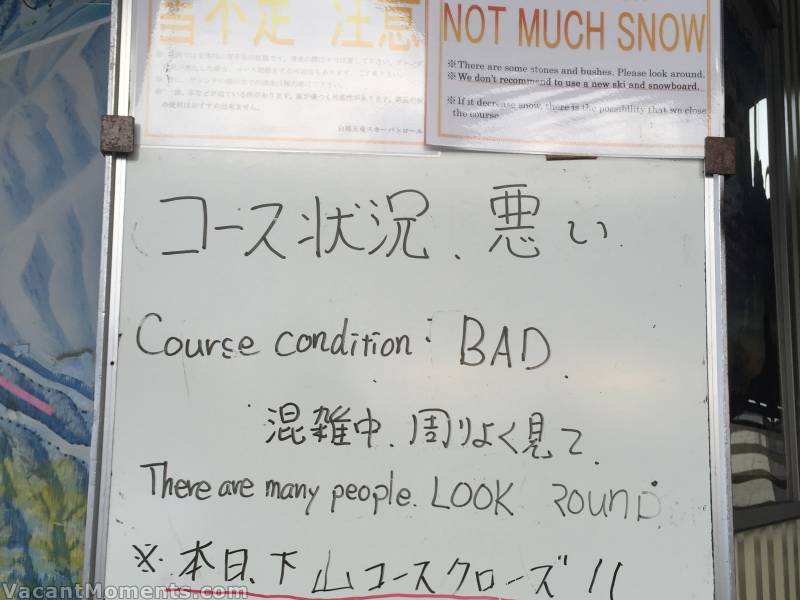 雪不足 注意
NOT MUCH SNOW
※There are some stones and bushes. Please look around.
※We don't recommend to use a new ski and snowboard.
※If it decrease snow, there is the possibility that we close
the course
白馬五竜スキーパトロール
コース状況、悪い.
Course condition: BAD.
混雑中、周りよく見て.
There are many people. LOOK ROUND.
※本日、下山コースクローズ!!
VacantMoments.com